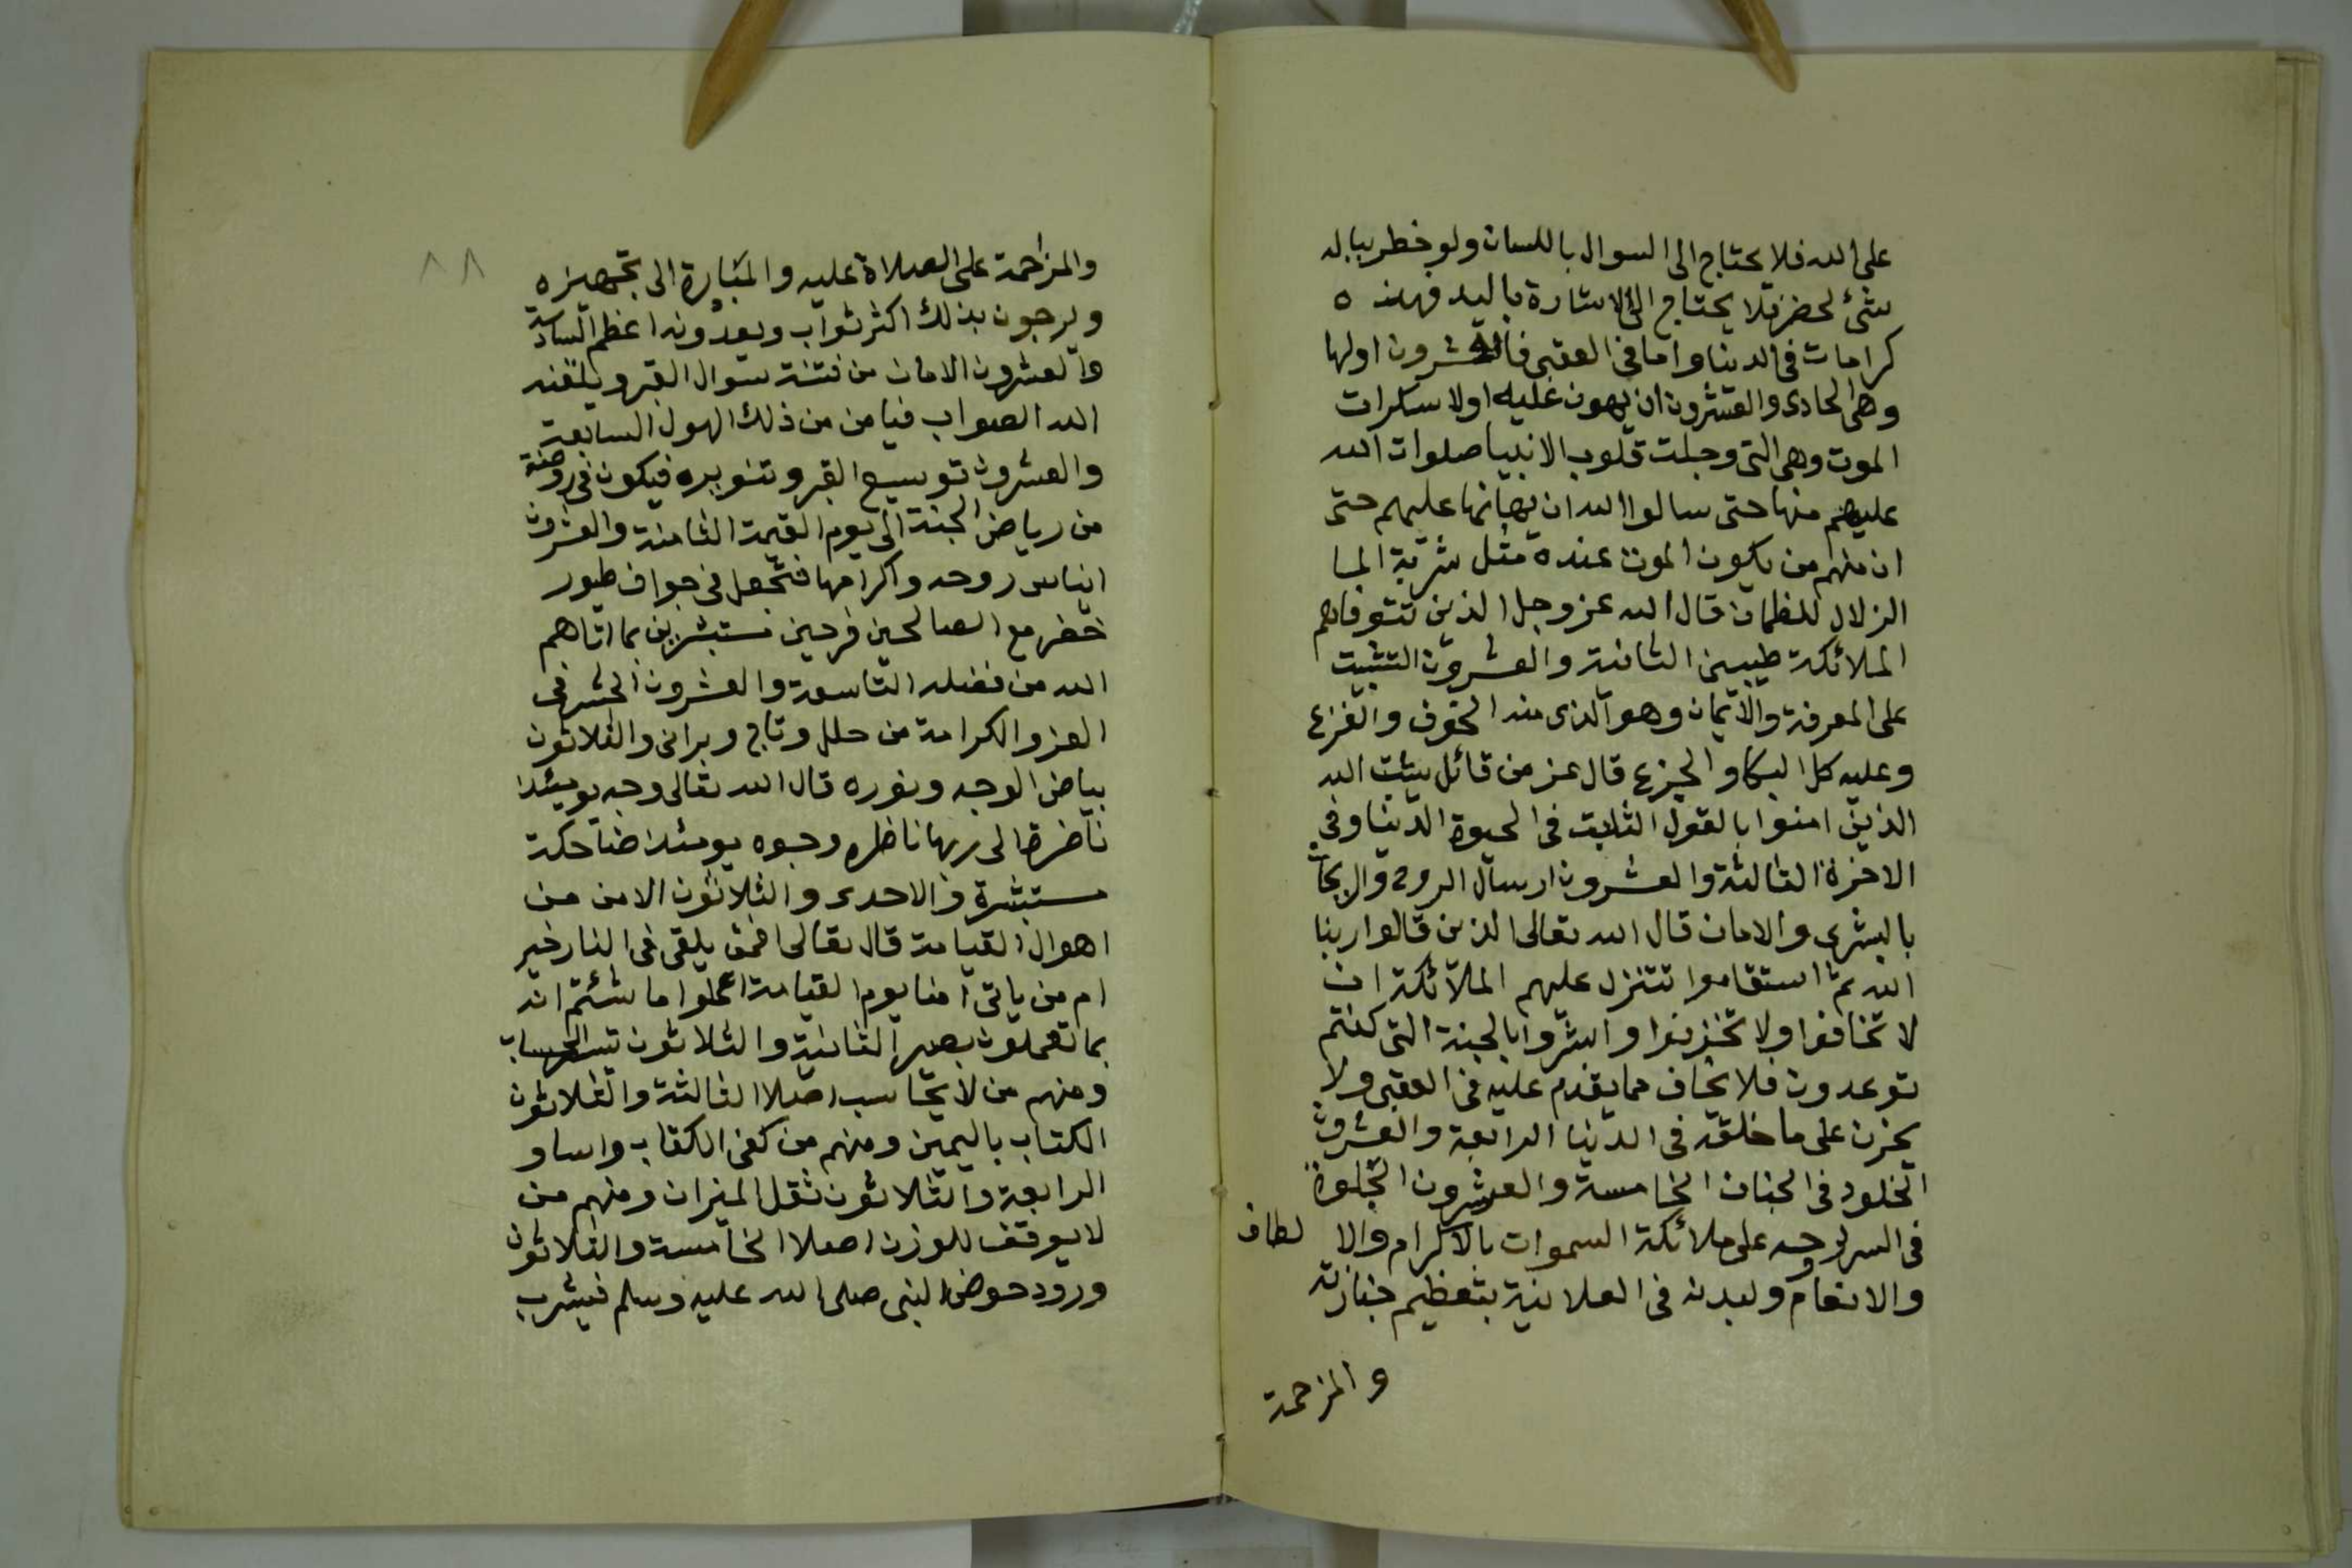 على الله فلا يحتاج الى السوال باللسان ولو خطر بباله
شئ لحضر فلا يحتاج الى الاشارة باليد فهذه
كرامات فى الدنيا واما فى العقبى فالعشرون اولها
وهى الحادى والعشرون ان يهون عليه اولا سكرات
الموت وهى التى وجلت قلوب الانبيا صلوات الله
عليهم منها حتى سالوا الله ان يهانها عليهم حتى
ان منهم من يكون الموت عنده مثل شربة الما
الزلال للظمان قال الله عز وجل الذين تتوفاهم
الملائكة طيبين الثانية والعشرون التثبيت
على المعرفة والايمان وهو الذى منه الخوف والفزع
وعليه كل البكا والجزع قال عز من قائل يثبت الله
الذين امنوا بالقول الثابت فى الحيوة الدنيا وفى
الاخرة الثالثة والعشرون ارسال الروح والريحان
بالبشرى والامان قال الله تعالى الذين قالوا ربنا
الله ثم استقاموا تتنزل عليهم الملائكة ان
لا تخافوا ولا تحزنوا وابشروا بالجنة التى كنتم
توعدون فلا يخاف مما يقدم عليه فى العقبى ولا
يحزن على ما خلفه فى الدنيا الرابعة والعشرون
الخلود فى الجنان الخامسة والعشرون الجلوة
فى السر لروحه على ملائكة السموات بالاكرام والا لطاف
والانعام ولبدنه فى العلانية بتعظيم جنازته
والمزحمة
٨٨
والمزاحمة على الصلاة عليه والمبادرة الى تجهيزه
ويرجون بذلك اكثر ثواب ويعدونه اعظم السادسة
والعشرون الامان من فتنة سوال القبر ويلقنه
الله الصواب فيامن من ذلك الهول السابعة
والعشرون توسيع القبر وتنويره فيكون فى روضة
من رياض الجنة الى يوم القيمة الثامنة والعشرون
ايناس روحه واكرامها فتجعل فى جواف طيور
خضر مع الصالحين فرحين مستبشرين بما اتاهم
الله من فضله التاسعة والعشرون الحشر فى
العز والكرامة من حلل وتاج وبراق والثلاثون
بياض الوجه ونوره قال الله تعالى وجه يومئذ
ناضرة الى ربها ناظره وجوه يومئذ ضاحكة
مستبشرة والاحدى والثلاثون الامن من
اهوال القيامة قال تعالى افمن يلقى فى النار خير
ام من ياتى امنا يوم القيامة اعملوا ما شئتم انه
بما تعملون بصير الثانية والثلاثون الحساب
ومنهم من لا يحاسب اصلا الثالثة والثلاثون
الكتاب باليمين ومنهم من كفى الكتاب راسا و
الرابعة والثلاثون ثقل الميزان ومنهم من
لا يوقف للوزن اصلا الخامسة والثلاثون
ورود حوض النبى صلى الله عليه وسلم فيشرب